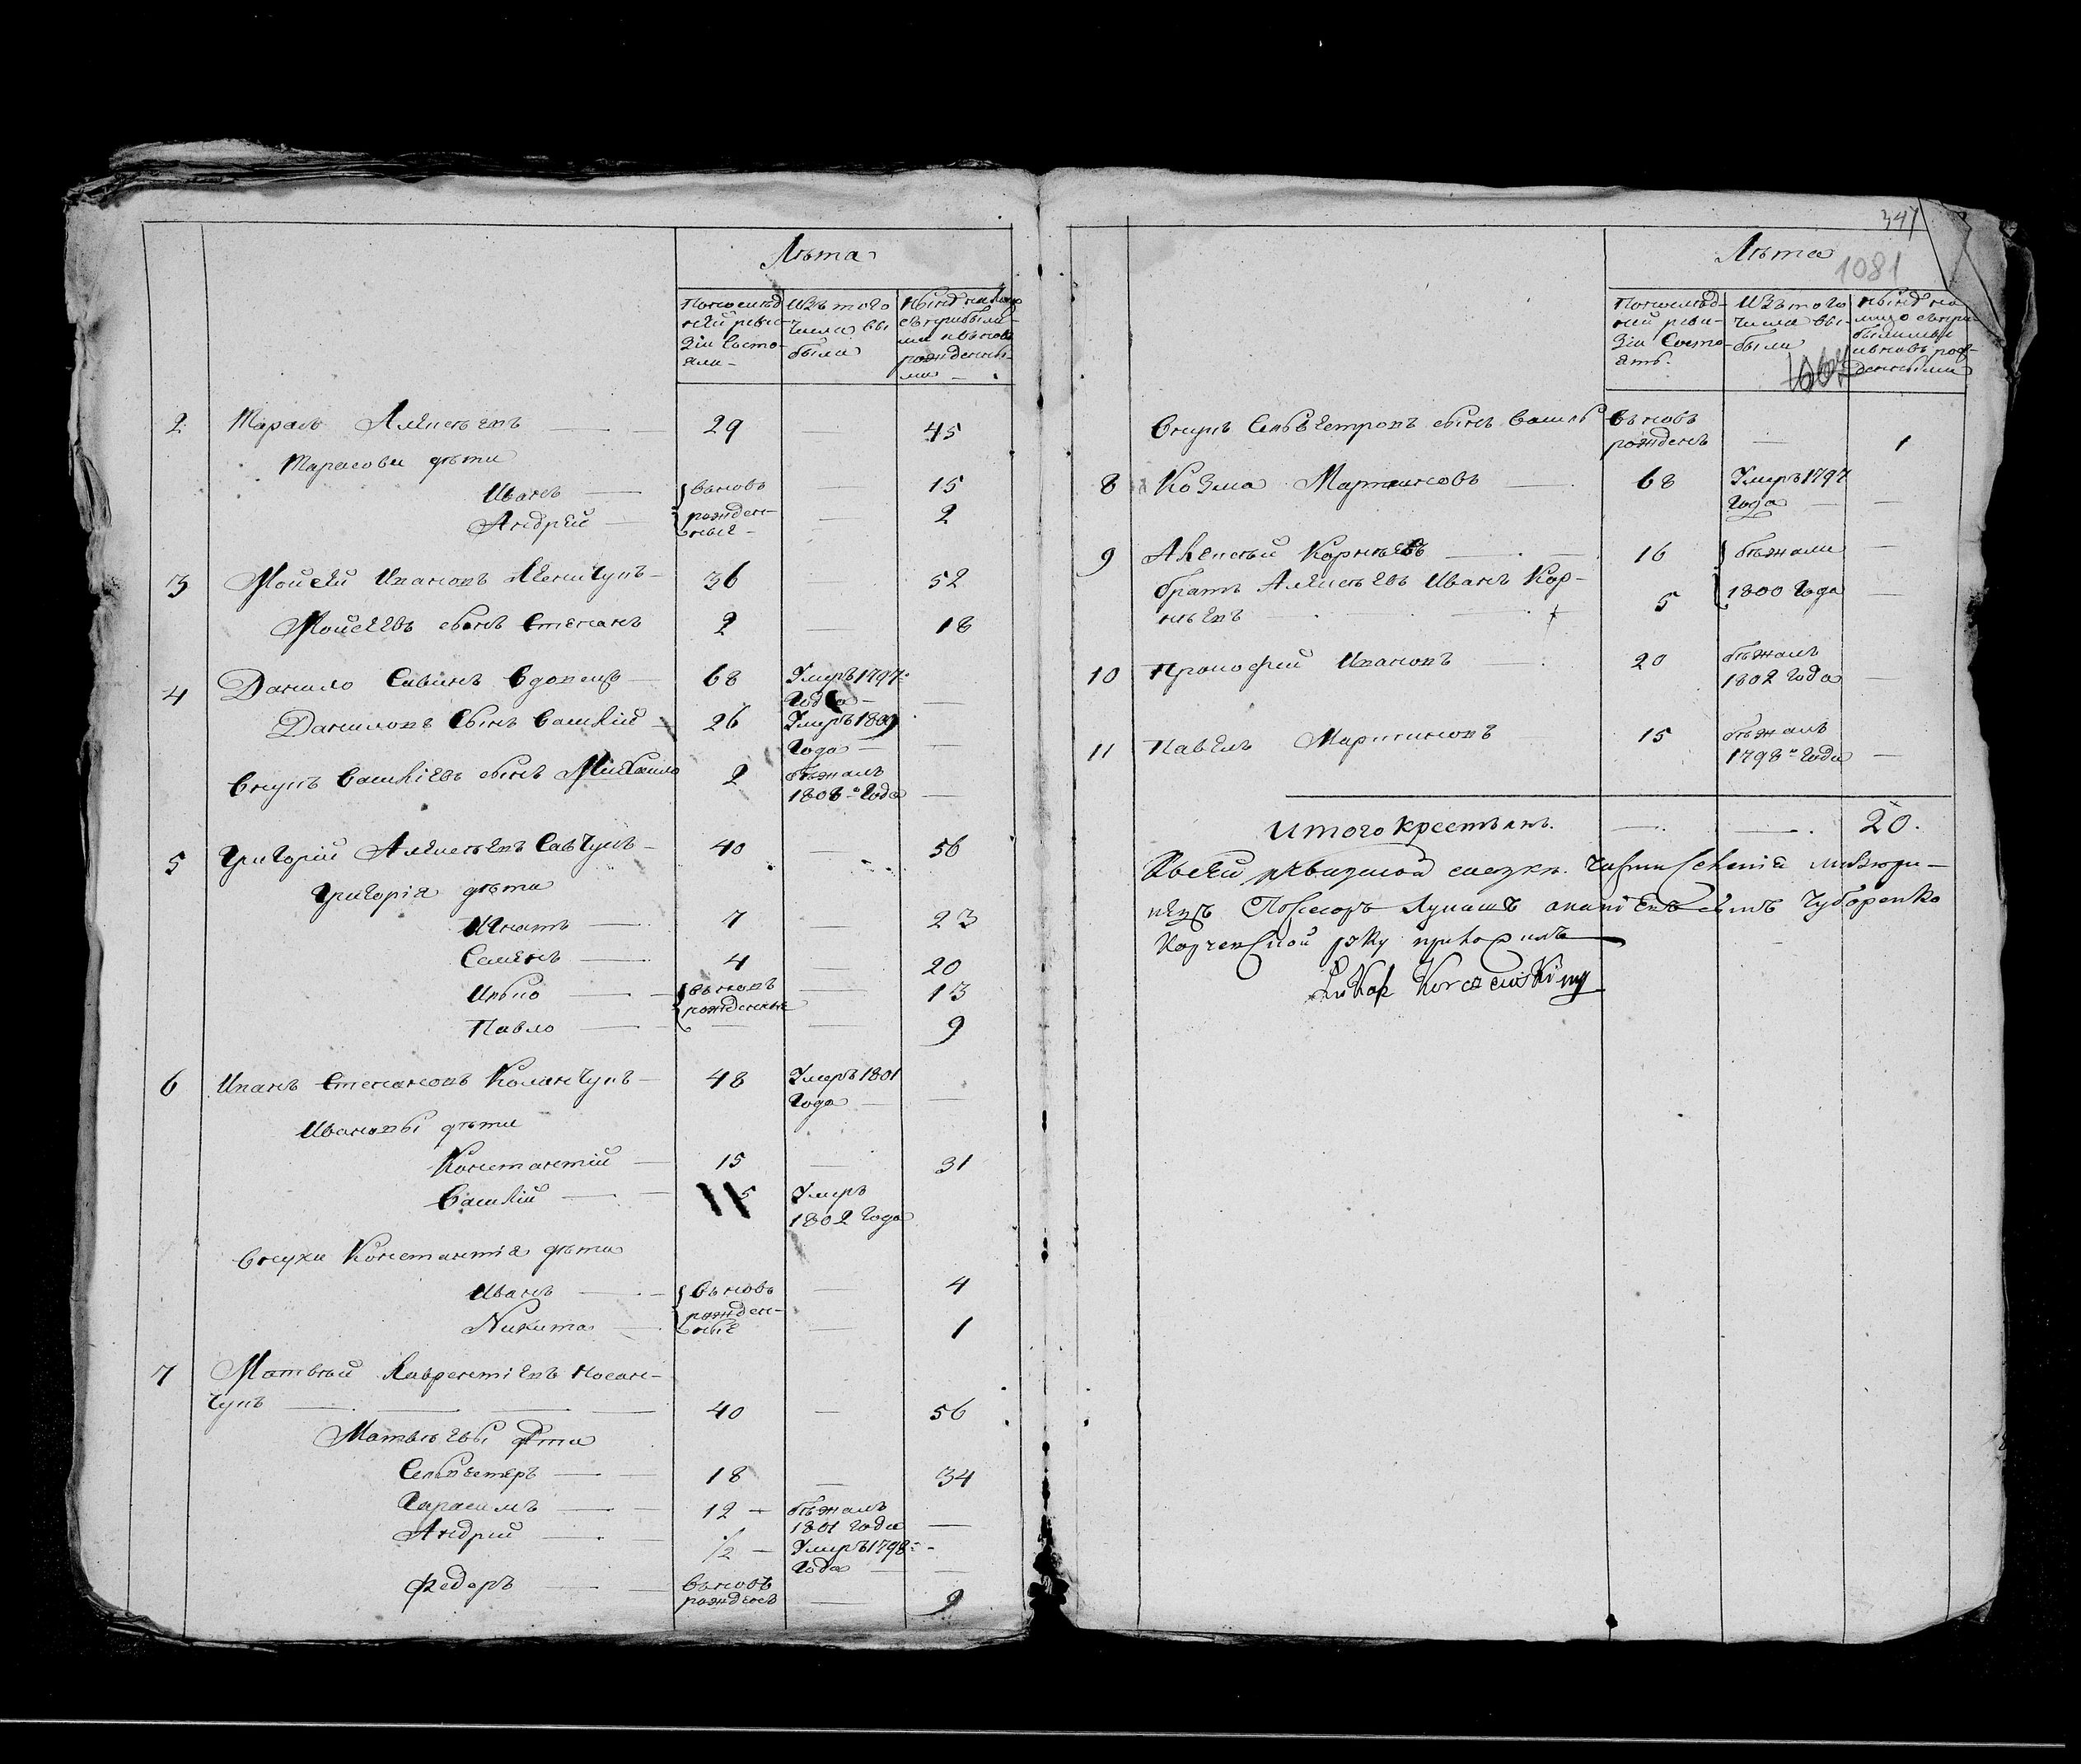 Лѣта
По послѣд-
ней реви-
зіи состо-
яли
изъ того
числа вы
были
нынѣ на лицо
съ прибыли
ми и вновь
рожденны-
ми
2 Тарасъ Алексѣевъ 29 — 45
Тарасовы дѣти
Иванъ вновь — 15
Андрей рожден-
ные — 2
3 Мойсей Ивановъ 36 — 52
Мойсеевъ сынъ Степанъ 2 — 18
4 Данило Савинъ Вдовецъ 68 Умеръ 1797
Года —
Даниловъ сынъ Василій 26 Умеръ 1809
Года —
Внукъ Василіевъ сынъ Михайло 2 бѣжалъ
1808 Года —
5 Григорій Алексѣевъ Савчукъ 40 — 56
Григорія дѣти
Игнатъ 7 — 23
Семенъ 4 — 20
Илько вновь — 13
рожденные
Павло — — 9
6 Иванъ Степановъ Коланчукъ 48 Умеръ 1801
Года —
Ивановы дѣти
Константій 15 — 31
Василій 5 Умеръ
1802 Года
Внуки Константія дѣти
Иванъ вновь — 4
рожден-
Никита ные — 1
7 Матвѣй Лаврентіевъ Посан-
чукъ 40 — 56
Матвѣевы дѣти
Сильвестеръ 18 — 34
Герасимъ 12 бѣжалъ
1801 Года —
Андрей 1/2 Умеръ 1798
Года —
Федоръ вновь
рожденъ — 9
347
Лѣта
1081
По послѣд-
ней реви-
зіи состо-
ятъ
изъ того
числа вы-
были
нынѣ на
лицо съ при
былыми
и вновь рож-
денными
Внукъ Сильвестровъ сынъ вновь
рожденъ — 1
8 Козма Мартиновъ 68 Умеръ 1797
Года —
9 Алексѣй Корнѣевъ 16 бѣжали —
братъ Алексѣевъ Иванъ Кор-
нѣевъ 5 1800 Года —
10 Прокофей Ивановъ 20 бѣжалъ
1802 Года —
11 Павелъ Мартиновъ 15 бѣжалъ
1798 Года —
Итого крестьянъ — — 20.
Къ сей ревизской сказкѣ
Посесоръ Лукашъ сынъ
руку приложилъ